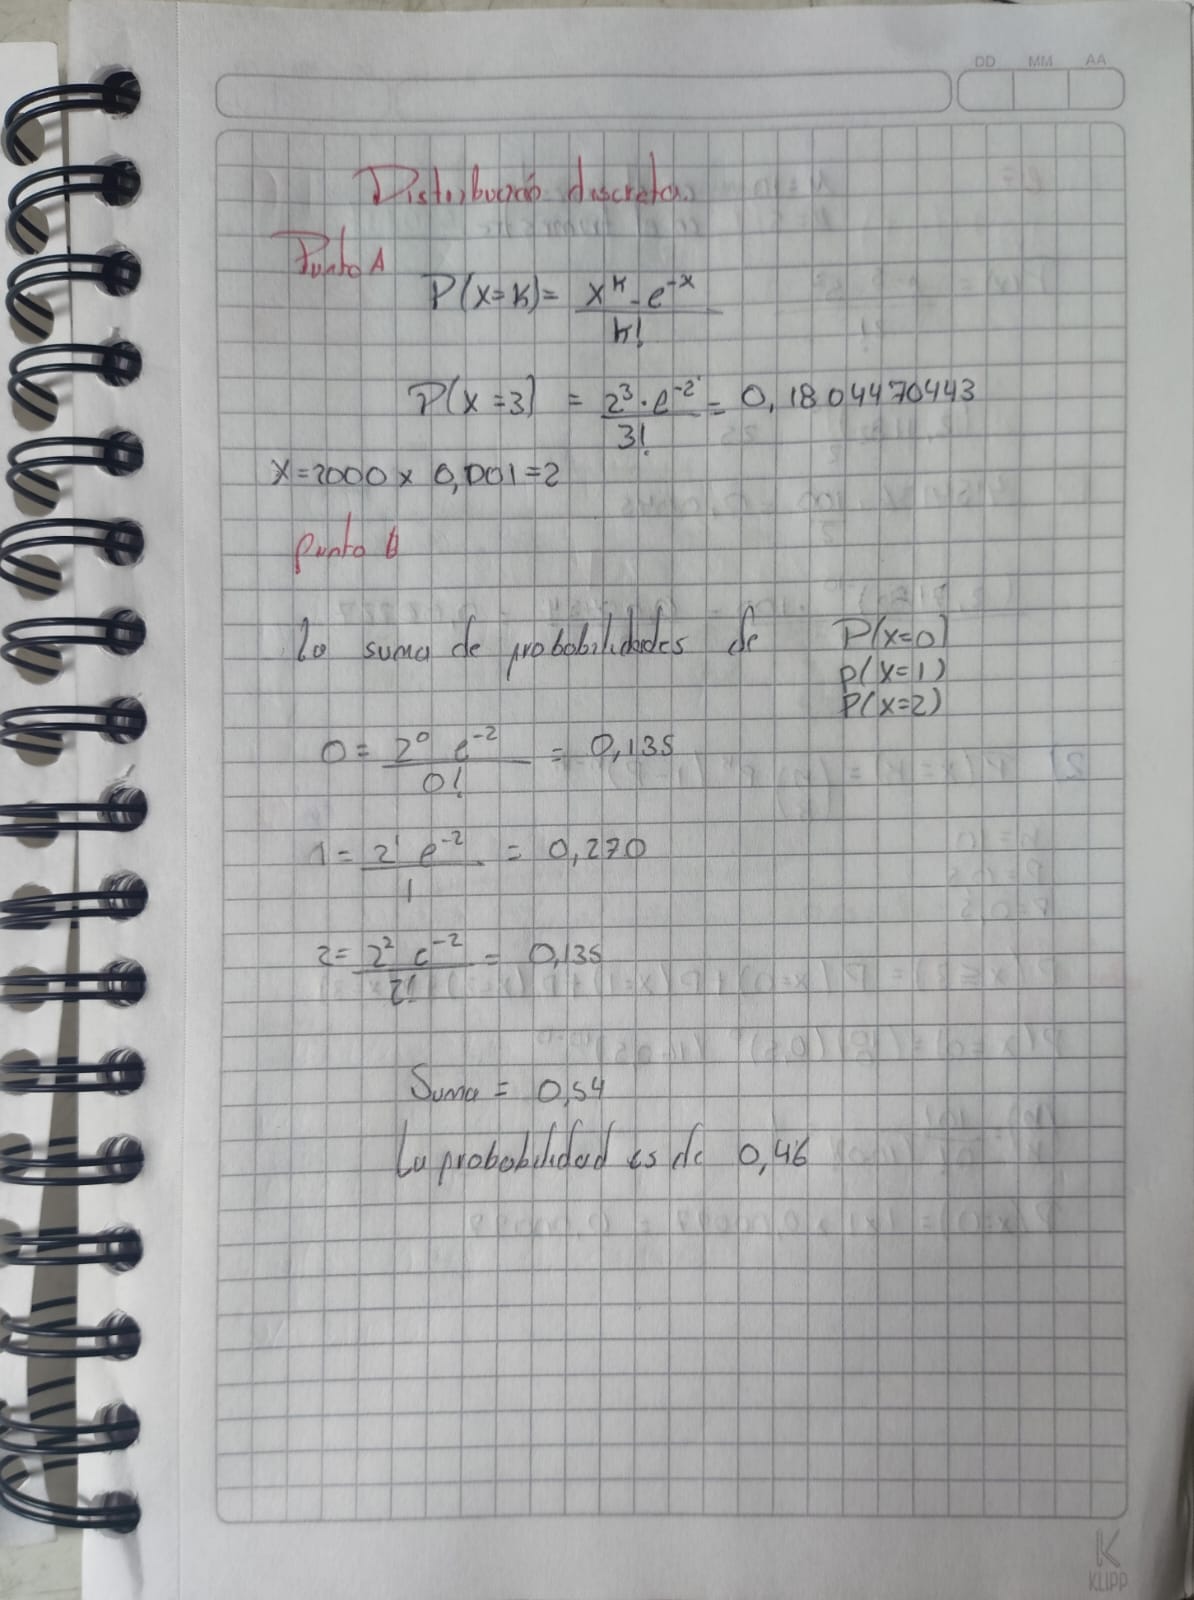 DD MM AA
Distribución discreta.
Punto A
P(x=k)= x^k - e^-x
k!
P(x=3) = 2^3 · e^-2 = 0,1804470443
3!
x=2000 x 0,001=2
punto b
La suma de probabilidades de P(x=0)
p(x=1)
P(x=2)
0= 2^0 e^-2 = 0,135
0!
1= 2^1 e^-2 = 0,270
1
2= 2^2 e^-2 = 0,135
2!
Suma = 0,54
La probabilidad es de 0,46
K
KLIPP